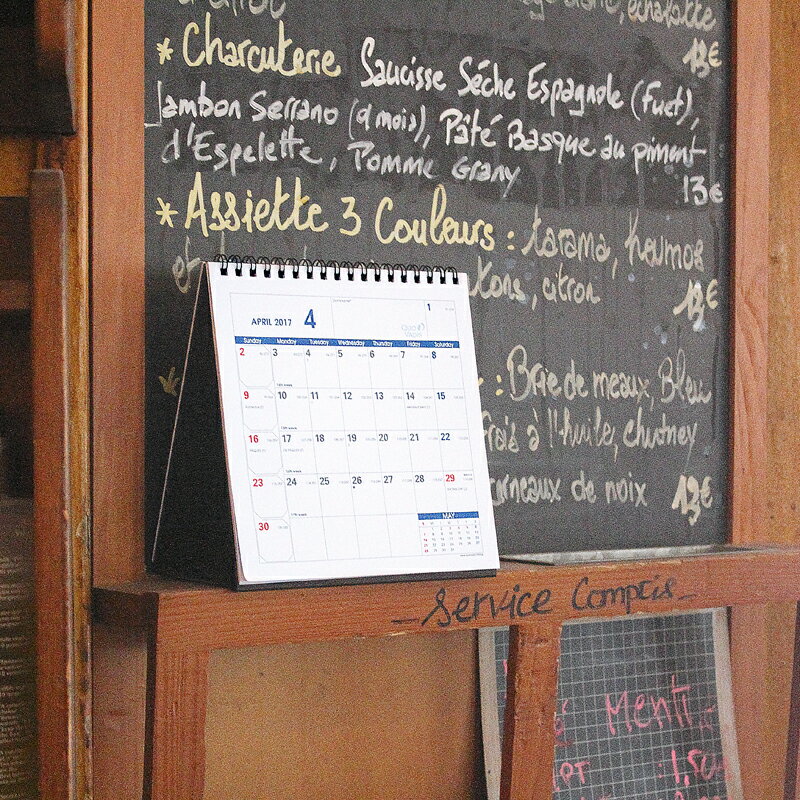 échalotte
13€
* Charcuterie Saucisse Séche Espagnole (Fuet),
Jambon Serrano (9 mois), Pâté Basque au piment
d'Espelette, Pomme Grany
13€
* Assiette 3 Couleurs : tarama, houmos
et citron
:Brie de meaux, Bleu
frais à l'huile, chutney
cerneaux de noix 13€
APRIL 2017 4 1
Sunday Monday Tuesday Wednesday Thursday Friday Saturday
2 3 4 5 6 7 8
9 10 11 12 13 14 15
16 17 18 19 20 21 22
23 24 25 26 27 28 29
30
MAY
- Service Compris -
Menti
: 1,50